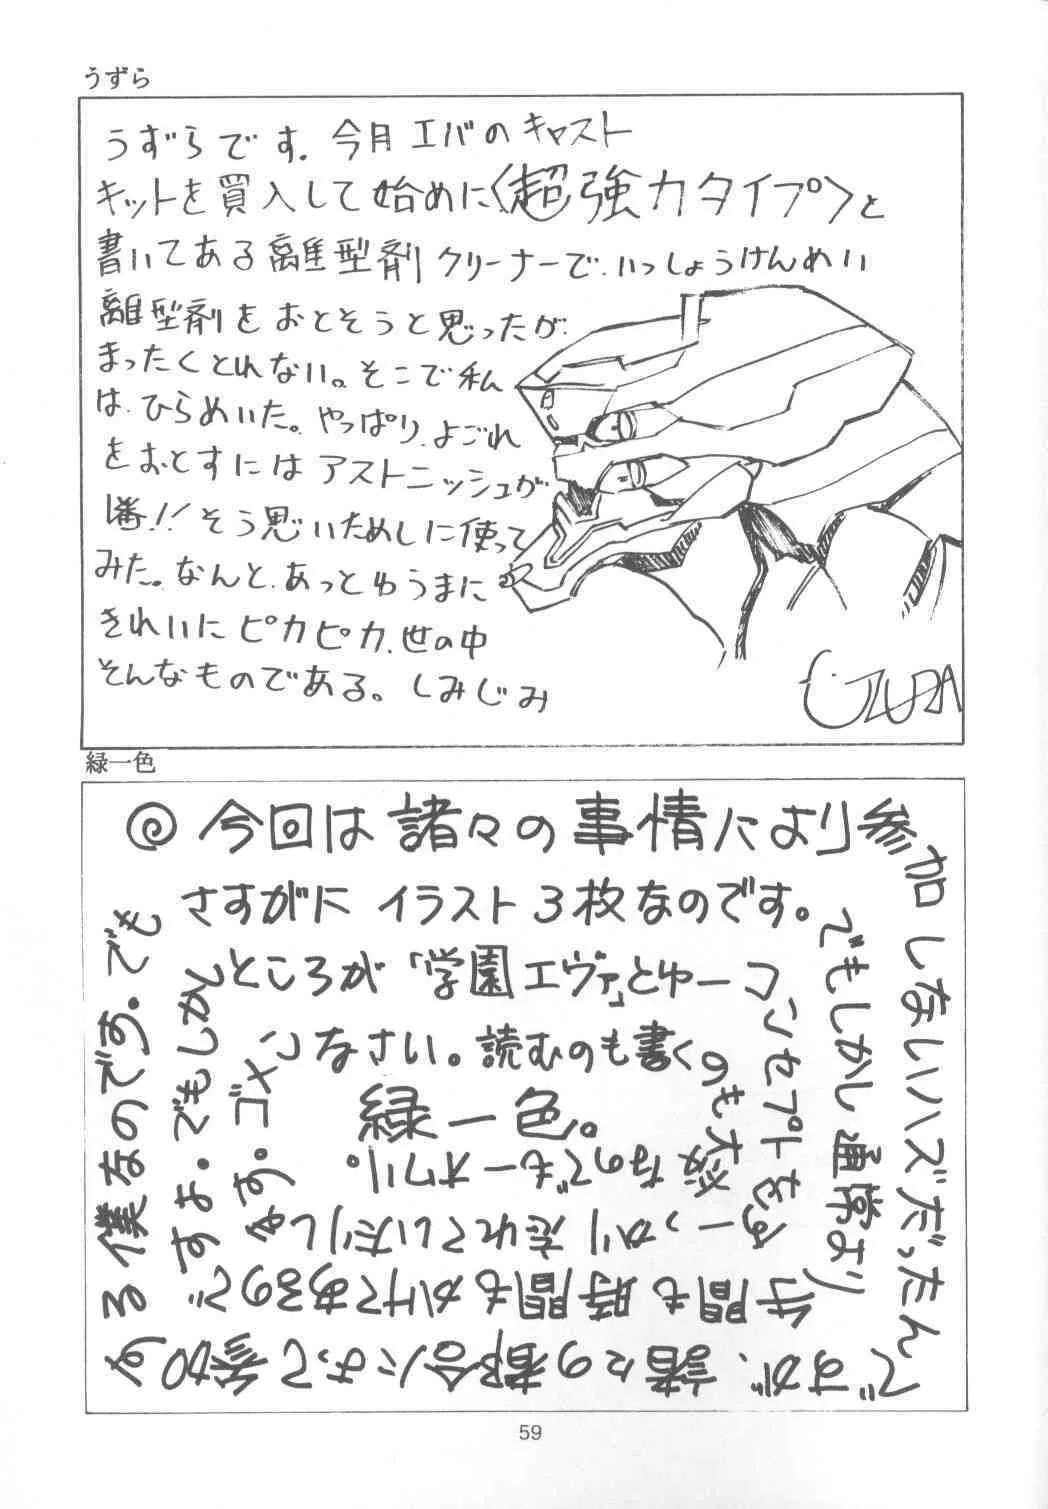 うずら
うずらです.今月エバのキャスト
キットを買入して始めに〈超強力タイプ〉と
書いてある離型剤クリーナーで、いっしょうけんめい
離型剤をおとそうと思ったが、
まったくとれない。そこで私
は、ひらめいた。やっぱり、よごれ
をおとすにはアストニッシュが
1番!!そう思いためしに使って
みた。なんと、あっとゆうまに
きれいにピカピカ、世の中
そんなものである。しみじみ
UZURA
緑一色
今回は諸々の事情により参加しないハズだったん
ですが、諸々の都合によって参加す
る僕なのです。でも
さすがにイラスト3枚なのです。
でもしかし通常より
手間も時間もかけてあるので
すよ。でもしかし
ところが「学園エヴァ」とゆーコンセプトをす
っかり忘れていたりし
ます。ゴメン
なさい。読むのも書くのも大変
なのでもーオワリ。
緑一色。
59